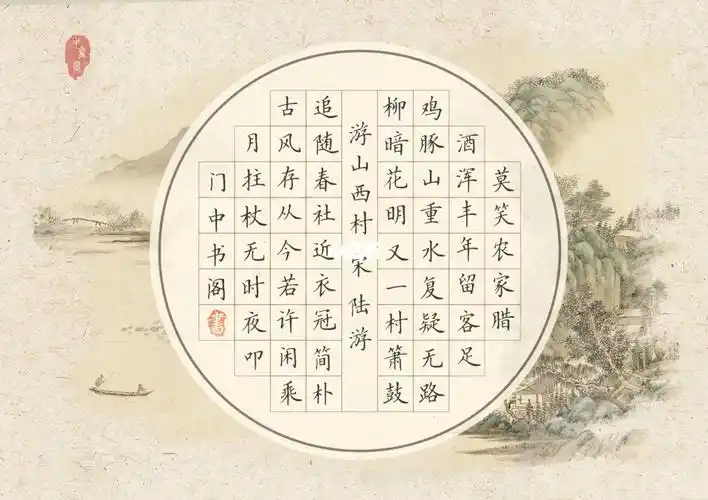 莫笑农家腊
酒浑丰年留客足
鸡豚山重水复疑无路
柳暗花明又一村箫鼓
游山西村 宋 陆游
追随春社近衣冠简朴
古风存从今若许闲乘
月拄杖无时夜叩
门中书阁
書